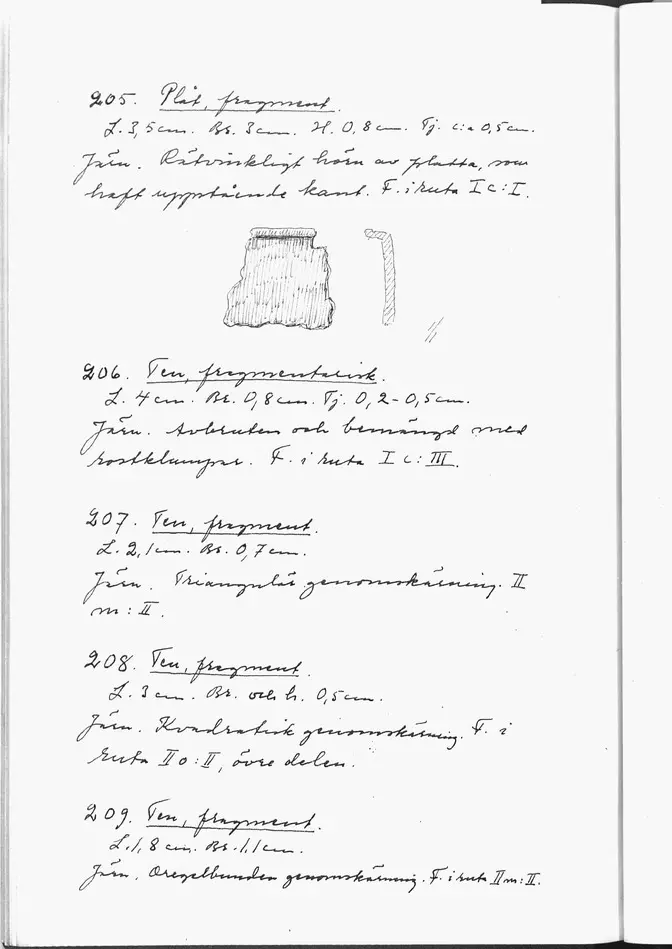 205. Plåt, fragment.
L. 3,5 cm. Br. 3 cm. H. 0,8 cm. Tj. c:a 0,5 cm.
Järn. Rätvinkligt hörn av platta, som
haft uppstående kant. F. i ruta I c: I.
206. Ten, fragmentarisk.
L. 4 cm. Br. 0,8 cm. Tj. 0,2-0,5 cm.
Järn. Avbruten och bemängd med
rostklumpar. F. i ruta I c: III.
207. Ten, fragment.
L. 2,1 cm. Br. 0,7 cm.
Järn. Triangulär genomskärning. II
m: II.
208. Ten, fragment.
L. 3 cm. Br. och h. 0,5 cm.
Järn. Kvadratisk genomskärning. F. i
ruta II o: II, övre delen.
209. Ten, fragment.
L. 1,8 cm. Br. 1,1 cm.
Järn. Oregelbunden genomskärning. F. i ruta II m: II.